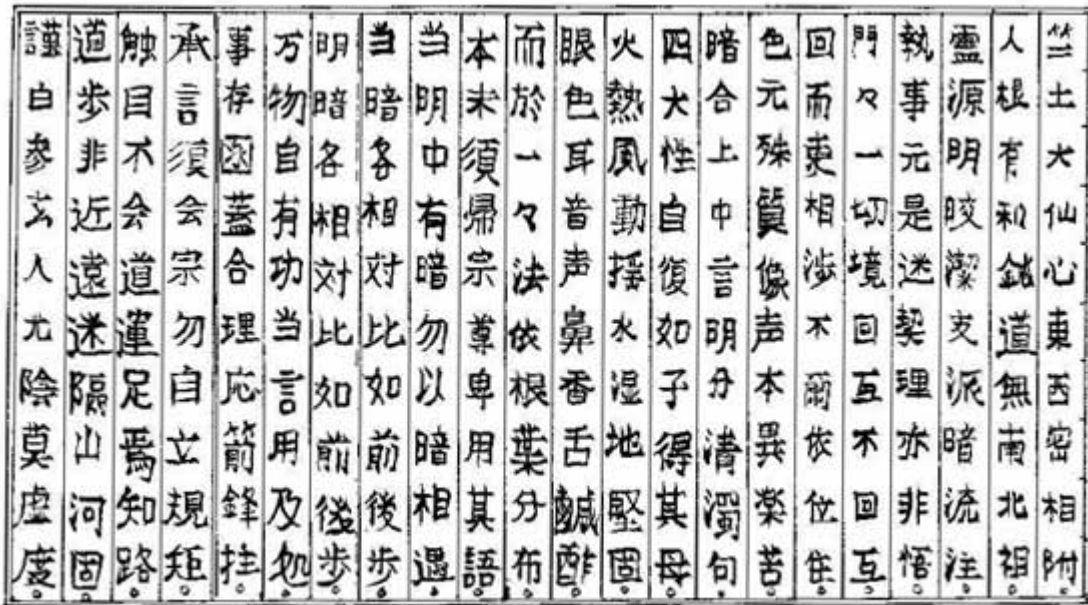 竺土大仙心東西密相附。
人根有利鈍道無南北祖。
靈源明皎潔支派暗流注。
執事元是迷契理亦非悟。
門々一切境回互不回互。
回而更相渉不爾依位住。
色元殊質像声本異楽苦。
暗合上中言明分清濁句。
四大性自復如子得其母。
火熱風動揺水湿地堅固。
眼色耳音声鼻香舌鹹酢。
而於一々法依根葉分布。
本末須帰宗尊卑用其語。
当明中有暗勿以暗相遇。
当暗各相対比如前後歩。
明暗各相対比如前後歩。
万物自有功当言用及処。
事存函蓋合理応箭鋒拄。
承言須会宗勿自立規矩。
触目不会道運足焉知路。
道歩非近遠迷隔山河固。
謹白参玄人光陰莫虚度。